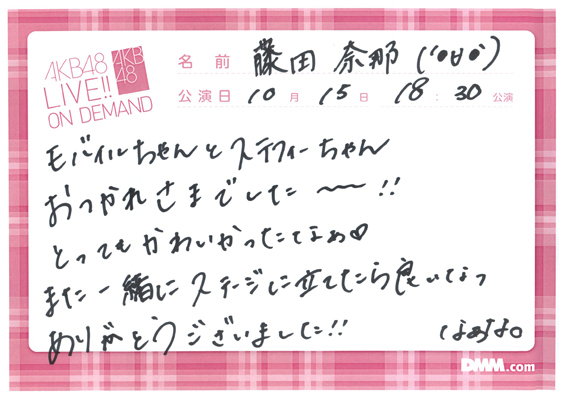 AKB48
LIVE!!
ON DEMAND
AKB
48
名前 藤田 奈那 (•́ㅂ•̀)
公演日 10月 15日 18:30 公演
モバイルちゃんとステフィーちゃん
おつかれさまでした〜!!
とってもかわいかったなぁ♡
また一緒にステージに立てたら良いなっ
ありがとうございました!!
なぁな。
DMM.com